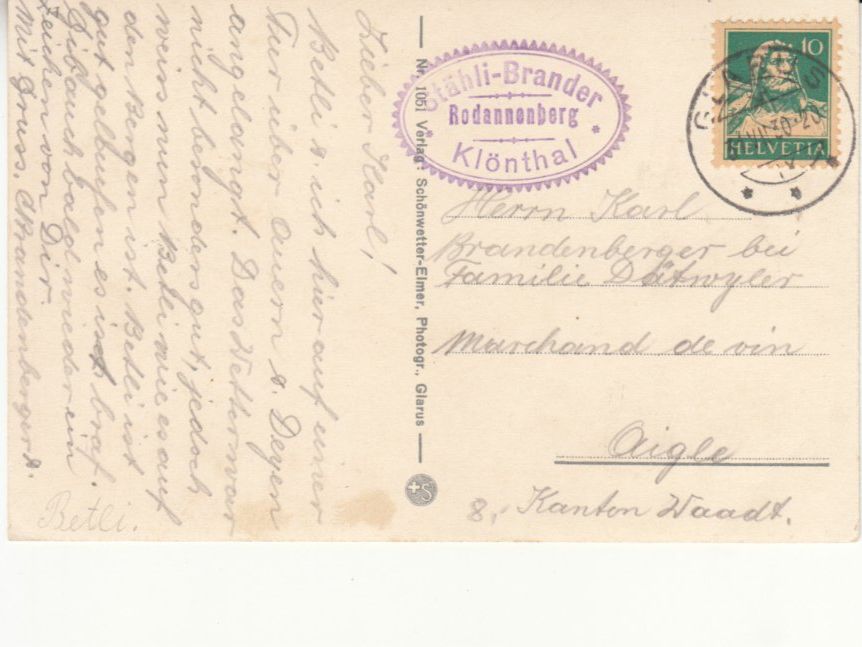 Lieber Karl!
Betli & ich hier auf einer
Tur über Auern & Deyen
angelangt. Das Wetter war
nicht besonders gut, jedoch
weiss nun Betli wie es auf
den Bergen ist. Betli ist
gut gelaufen es ist braf.
Gib auch bald wieder ein
Zeichen von Dir.
Mit Gruss. Brandenberger
Betli.
Nr. 1051 Verlag: Schönwetter-Elmer, Photogr., Glarus
S
Stähli-Brander
Rodannenberg
Klönthal
10
HELVETIA
GLARUS
VIII 30-20
Herrn Karl
Brandenberger bei
Familie Dätwyler
Marchand de vin
Aigle
8, Kanton Waadt.